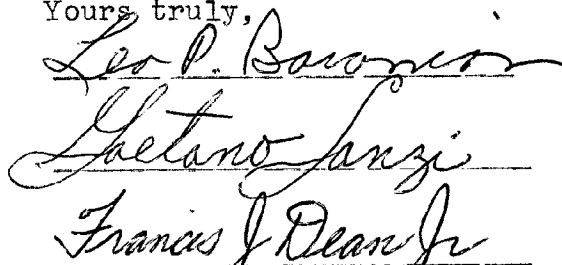 Yours truly,
Leo P. Baronian
Gaetano Lanzi
Francis J Dean Jr